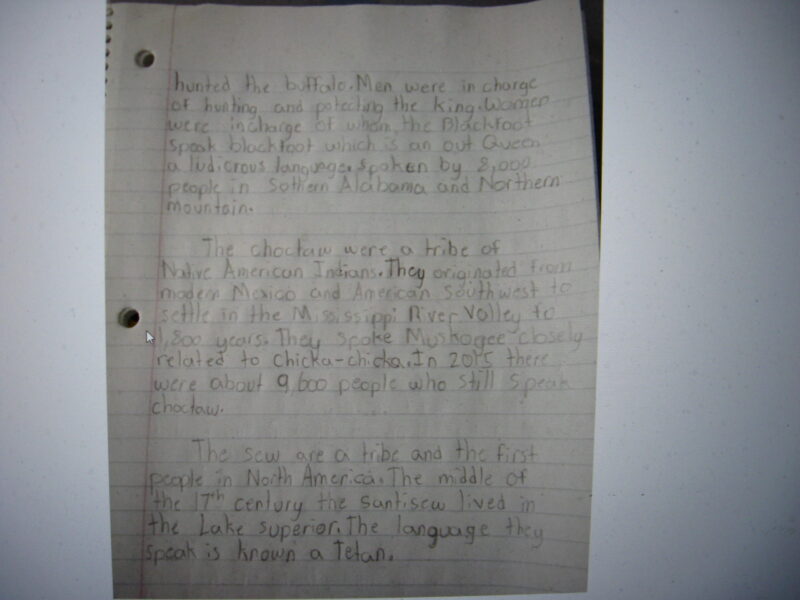 hunted the buffalo. Men were in charge
of hunting and potecting the king. Women
were incharge of when the Blackfoot
speak blackfoot which is an out Queen
a ludicrous language. spoken by 8,000
people in Sothern Alabama and Northern
mountain.
The choctaw were a tribe of
Native American Indians. They originated from
modern Mexico and American Southwest to
settle in the Mississippi River Valley to
1,800 years. They spoke Muskogee closely
related to Chicka-chicka. In 2015 there
were about 9,600 people who still speak
choctaw.
The sew are a tribe and the first
people in North America. The middle of
the 17th century the santisew lived in
the Lake superior. The language they
speak is known a Tetan.